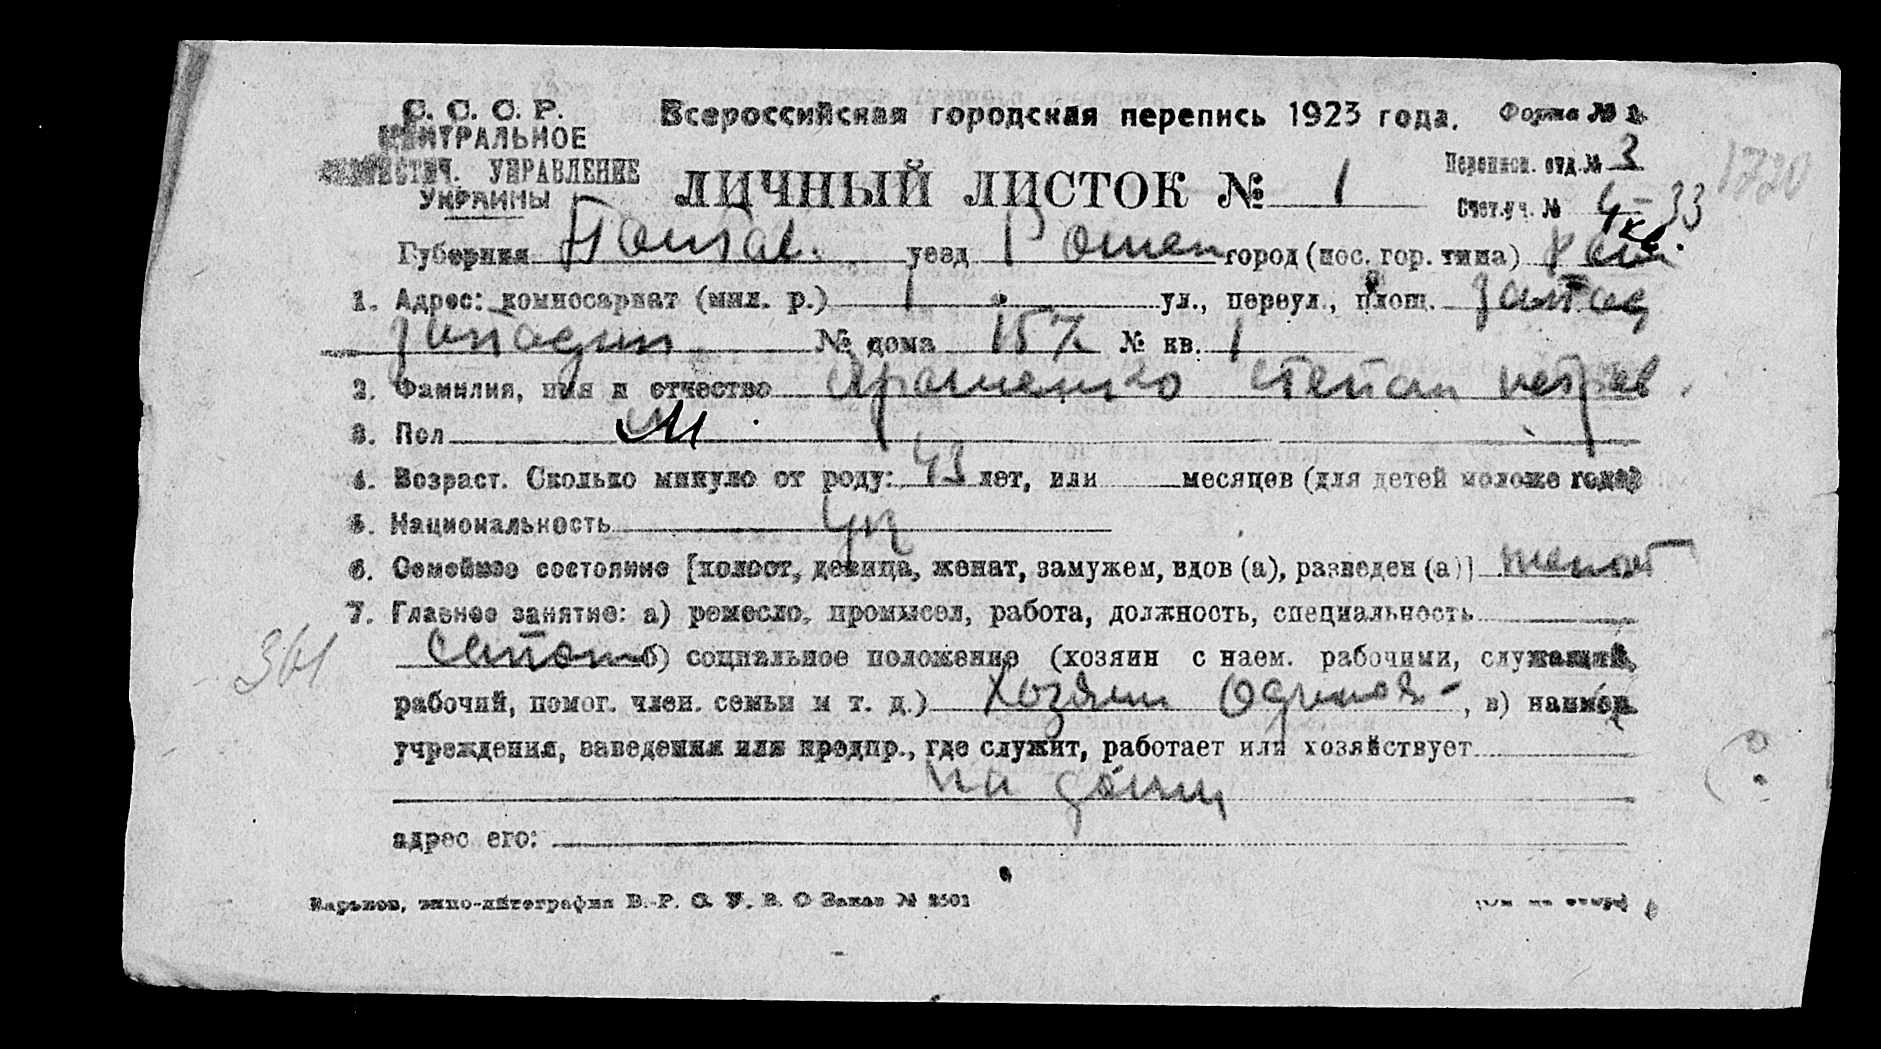 С. С. С. Р. Всероссийская городская перепись 1923 года. Форма № 1.
ЦЕНТРАЛЬНОЕ
СТАТИСТИЧ. УПРАВЛЕНИЕ
УКРАИНЫ
ЛИЧНЫЙ ЛИСТОК № 1
Переписн. отд. № 3
Счет. уч. № 4-33
1720
Губерния Полтав. уезд Ромен город (пос. гор. типа)
1. Адрес: комиссариат (мил. р.) 1 ул., переул., площ.
№ дома 157 № кв. 1
2. Фамилия, имя и отчество Ярошенко Степан Петров.
3. Пол М
4. Возраст. Сколько минуло от роду: 43 лет, или месяцев (для детей моложе года)
5. Национальность Укр
6. Семейное состояние [холост, девица, женат, замужем, вдов (а), разведен (а)] женат
7. Главное занятие: а) ремесло, промысел, работа, должность, специальность
361
сапожн б) социальное положение (хозяин с наем. рабочими, служащий,
рабочий, помог. член. семьи и т. д.) хозяин одиноч-, в) наимен.
учреждения, заведения или предпр., где служит, работает или хозяйствует
на дому
адрес его:
Харьков, типо-литография В. Р. С. У. В. О Заказ № 2501